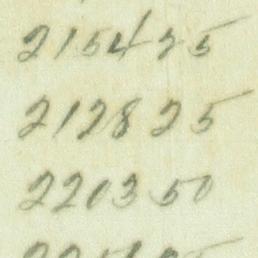 2154 25
2128 25
2203 50